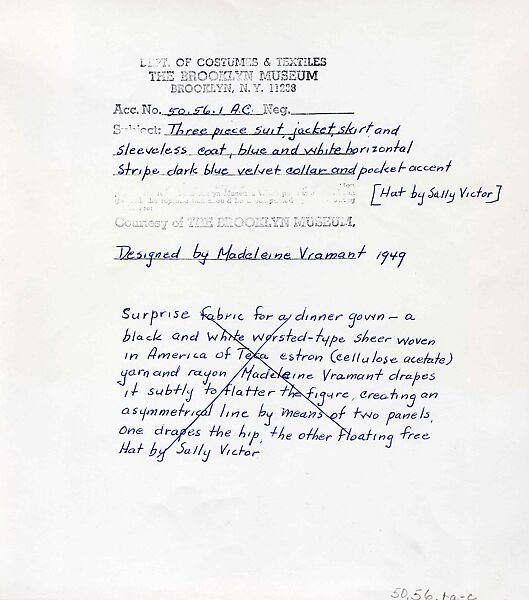 DEPT. OF COSTUMES & TEXTILES
THE BROOKLYN MUSEUM
BROOKLYN, N.Y. 11238
Acc. No. 50.56.1 A.C. Neg.
Subject: Three piece suit, jacket, skirt and
sleeveless coat, blue and white horizontal
stripe dark blue velvet collar and pocket accent
[Hat by Sally Victor]
Courtesy of THE BROOKLYN MUSEUM,
Designed by Madeleine Vramant 1949
Surprise fabric for a dinner gown – a
black and white worsted-type sheer woven
in America of Teca estron (cellulose acetate)
yarn and rayon Madeleine Vramant drapes
it subtly to flatter the figure, creating an
asymmetrical line by means of two panels,
one drapes the hip, the other floating free
Hat by Sally Victor
50.56.1a-c